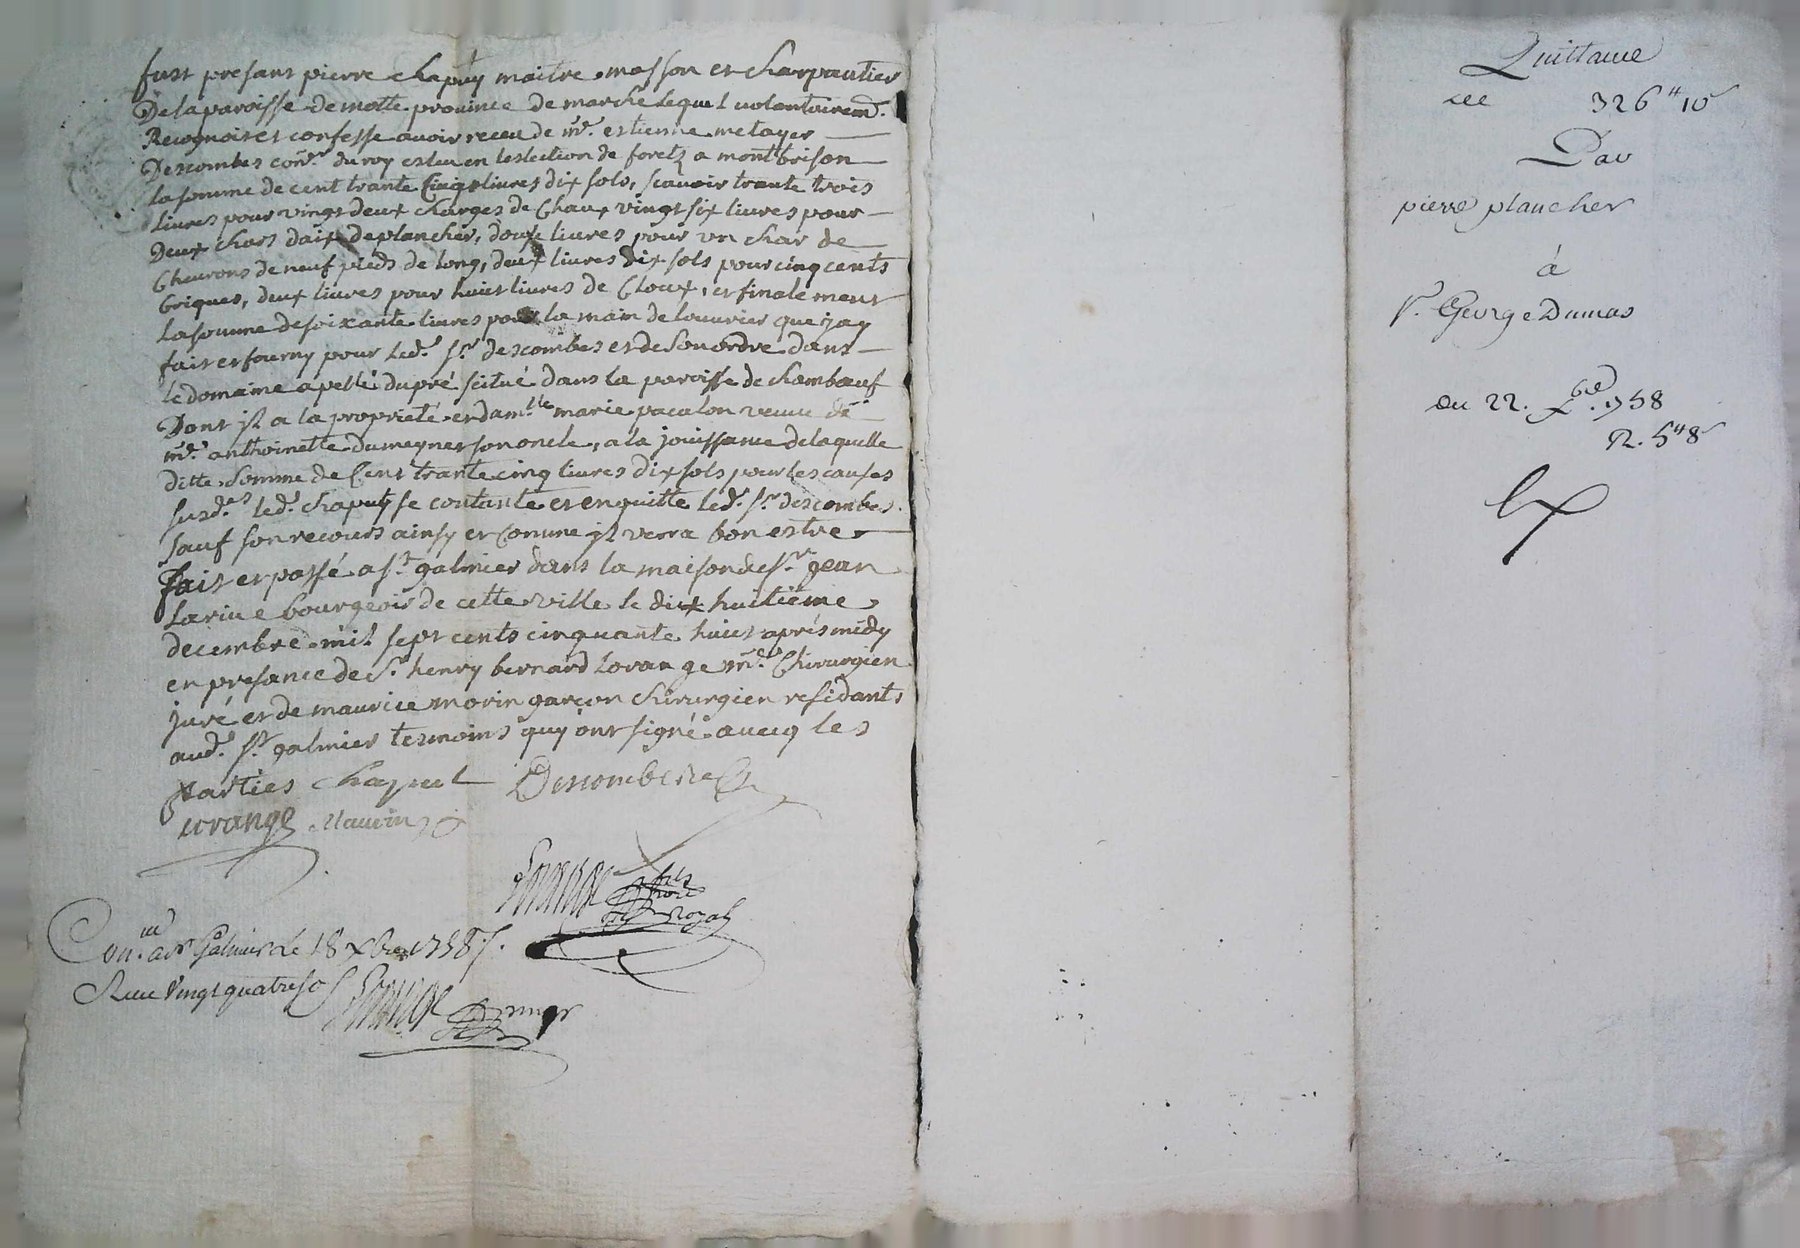 fust presant pierre chapuy maitre masson et charpantier
De la paroisse de motte province de marche lequel volontairemt.
Recognoit et confesse avoir receu de mr. estienne metayer
Descombes conr. du roy esleu en leslection de foretz a montbrison
la somme de cent trante Cinq livres dix sols, scavoir trante trois
livres pour vingt deux charges de Chaux vingt six livres pour
Deux chars daix de plancher, douze livres pour un char de
Chevrons de neuf pieds de long, deux livres dix sols pour cinq cents
briques, deux livres pour huict livres de Cloux, et finalement
la somme de soixante livres pour la main de louvrier que jay
fait et fourny pour led. sr. descombes et de son ordre dans
le domaine apellé dupré scitué dans la paroisse de chambœuf
Dont jl a la proprieté et damlle marie pacalon veuve de
mr. anthoinette dumeynet son oncle, a la jouissance de laquelle
ditte somme de Cent trante cinq livres dix sols pour les causes
susd.es led. chapuy se contante et en quitte led. sr. descombes
sauf son recours ainsy et Comme jl verra bon estre
fait et passé a st. galmier dans la maison de sr. jean
larive bourgeois de cette ville le dix huitième
decembre mil sept cents cinquante huict aprés midy
en presance de Sr. henry bernard lorange me. Chirurgien
juré et de maurice morin garçon chirurgien residants
aud. st. galmier tesmoins quy ont signé avecq les
parties chapuel Descombes
lorange Maurin
Royal
Con.lé a St Galmier le 18 xbre 1758
Receu vingt quatre s
Quittance
de 326# 10s
Par
pierre plancher
à
Sr. George Dumas
du 22. Xbre. 1758
R. 5# 8s